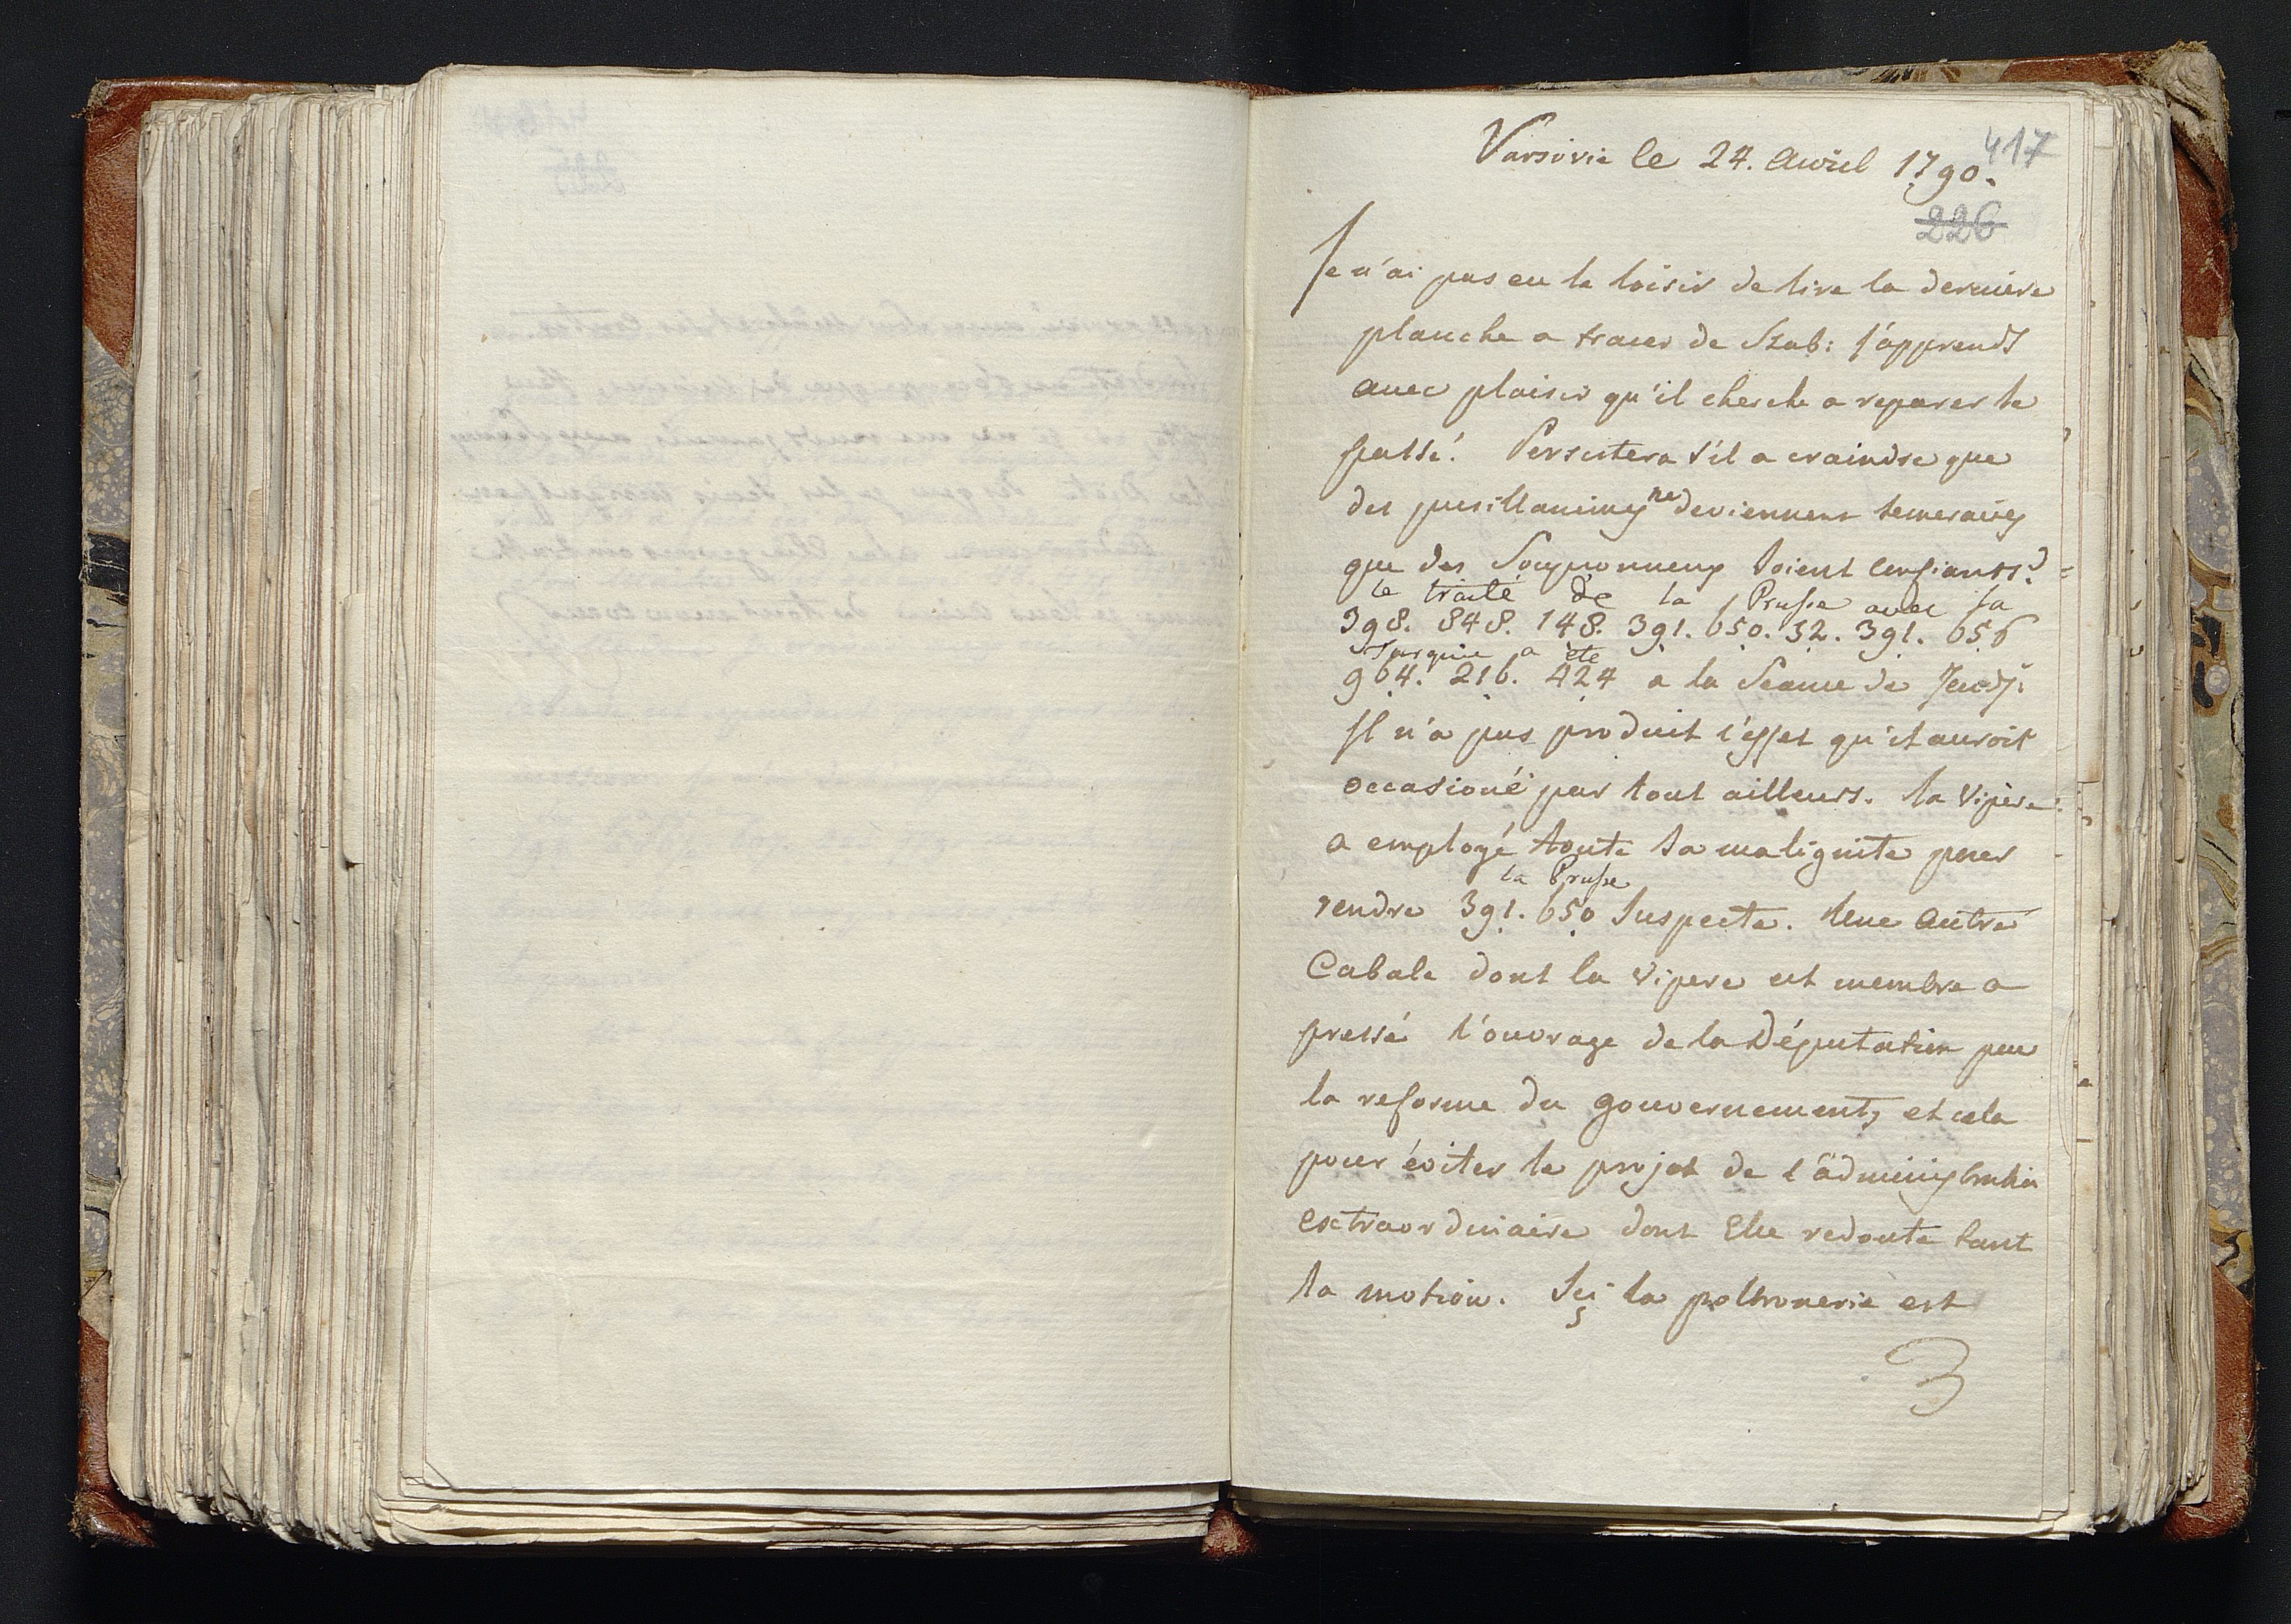 417
Varsovie le 24. Avril 1790.
226
Je n'ai pas eu le loisir de lire la derniere
planche a tracer de Szab: j'apprends
avec plaisir qu'il cherche a reparer le
passé. Persistera s'il a craindre que
des pusillanimes ne deviennent temeraires
que des Soupçonneux soient confiants?
le traité de la Prusse avec la
398. 848. 148. 391. 650. 32. 391. 656
Turquie a été
964. 216. 424 a la Seance de Jeudi
Il n'a pas produit l'effet qu'il auroit
occasioné par tout ailleurs. la Vipère
a employé toute sa malignite pour
la Prusse
rendre 391. 650 suspecte. Une autre
Cabale dont la Vipere est membre a
pressé l'ouvrage de la Députation pour
la reforme du gouvernement, et cela
pour éviter le projet de l'administration
extraordinaire dont Elle redoute tant
la motion. Ici la poltronerie est